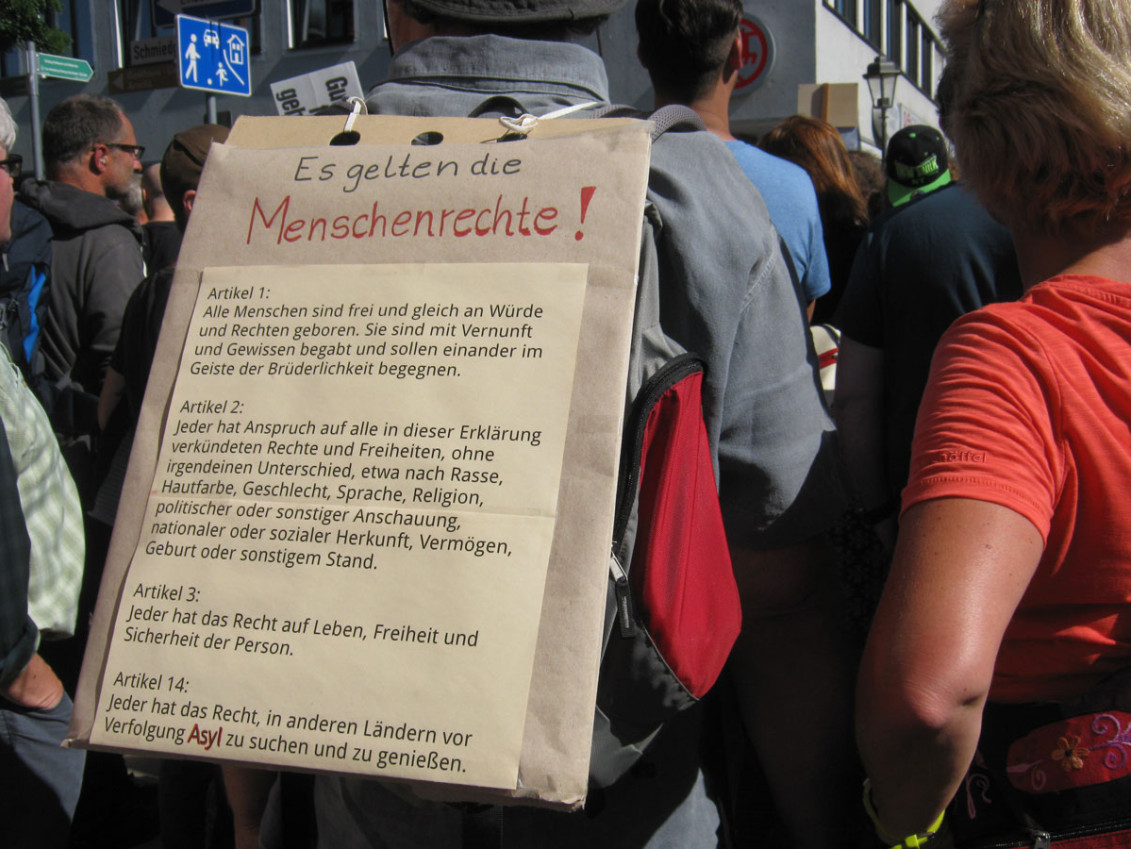 Schmied
Gu
gel
Es gelten die
Menschenrechte!
Artikel 1:
Alle Menschen sind frei und gleich an Würde
und Rechten geboren. Sie sind mit Vernunft
und Gewissen begabt und sollen einander im
Geiste der Brüderlichkeit begegnen.
Artikel 2:
Jeder hat Anspruch auf alle in dieser Erklärung
verkündeten Rechte und Freiheiten, ohne
irgendeinen Unterschied, etwa nach Rasse,
Hautfarbe, Geschlecht, Sprache, Religion,
politischer oder sonstiger Anschauung,
nationaler oder sozialer Herkunft, Vermögen,
Geburt oder sonstigem Stand.
Artikel 3:
Jeder hat das Recht auf Leben, Freiheit und
Sicherheit der Person.
Artikel 14:
Jeder hat das Recht, in anderen Ländern vor
Verfolgung Asyl zu suchen und zu genießen.